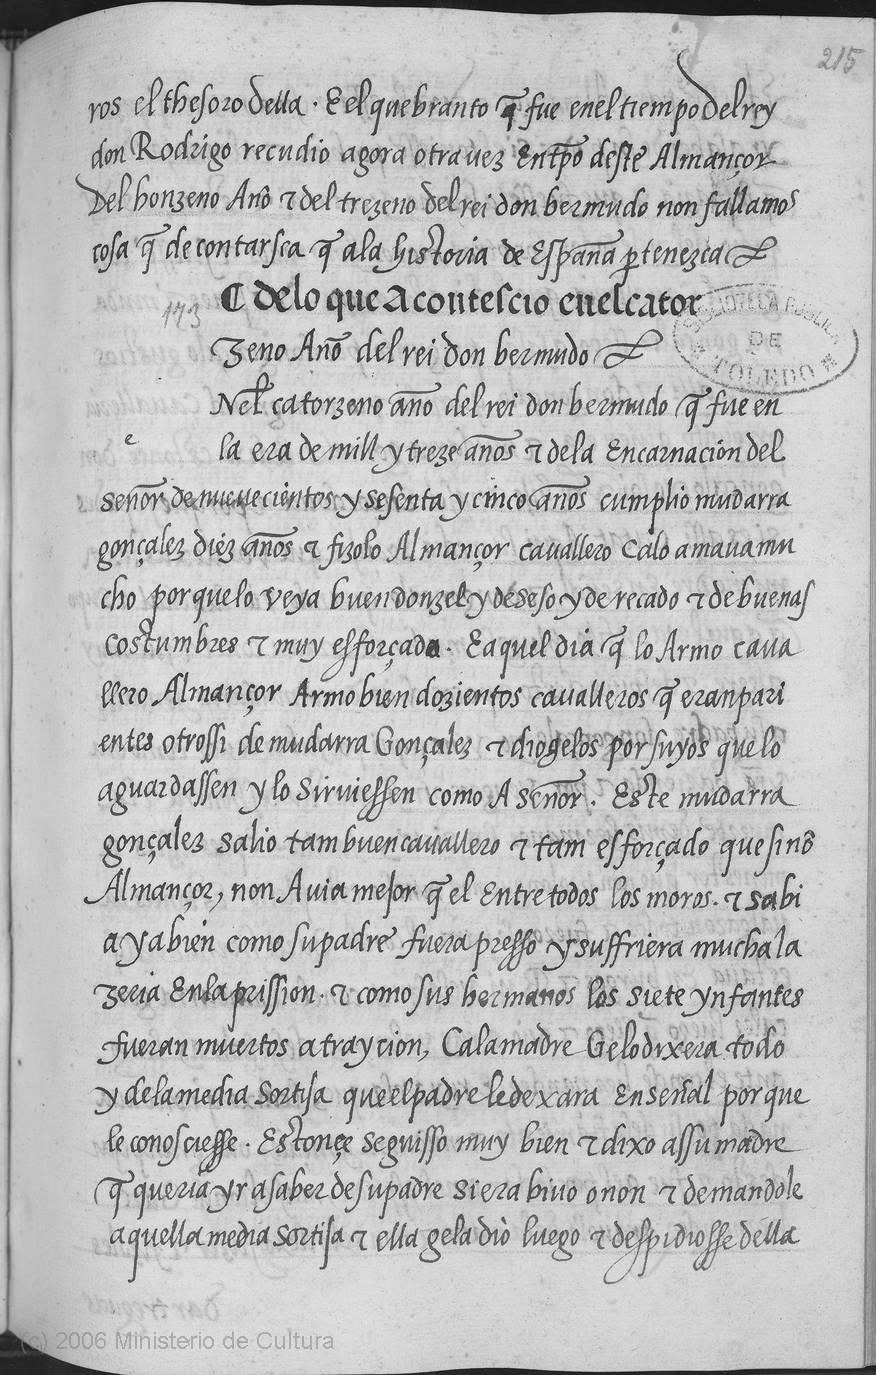 215
ros el thesoro della. E el quebranto q̃ fue enel tiempo del rey
don Rodrigo recudio agora otra vez Entp̃o deste Almançor
Del honzeno Año ⁊ del trezeno del rei don bermudo non fallamos
cosa q̃ de contar sea q̃ ala historia de España pertenezca
173
C delo que Acontescio enel cator
zeno Año del rei don bermudo
Nel catorzeno año del rei don bermudo q̃ fue en
e
la era de mill y treze años ⁊ dela Encarnación del
señor de nuevecientos y sesenta y cinco años cumplio mudarra
gonçalez diéz años ⁊ fizolo Almançor cavallero Calo amaua mu
cho porquelo veya buen donzel y de seso y de recado ⁊ de buenas
costumbres ⁊ muy esforçado. Ea quel dia q̃ lo Armo cava
llero Almançor Armo bien dozientos cavalleros q̃ eran pari
entes otrossi de mudarra Gonçalez ⁊ diogelos por suyos que lo
aguardassen y lo sirviessen como A señor. Este mudarra
gonçalez salio tam buen cauallero ⁊ tam esforçado que si nõ
Almançor, non Auia mejor q̃ el Entre todos los moros. ⁊ sabi
a ya bién como su padre fuera presso y suffriera mucha la
zeria Enla prission. ⁊ como sus hermanos los siete ynfantes
fueran muertos a traycion, Calamadre Gelo dixera todo
y dela media sortisa que el padre le dexara En señal porque
le conosciesse. Estonçe seguisso muy bien ⁊ dixo assu madre
q̃ queria yr a saber de su padre si era biuo o non ⁊ demandole
aquella media sortisa ⁊ ella gela dio luego ⁊ despidiosse della
BIBLIOTECA PUBLICA
DE
TOLEDO
(c) 2006 Ministerio de Cultura